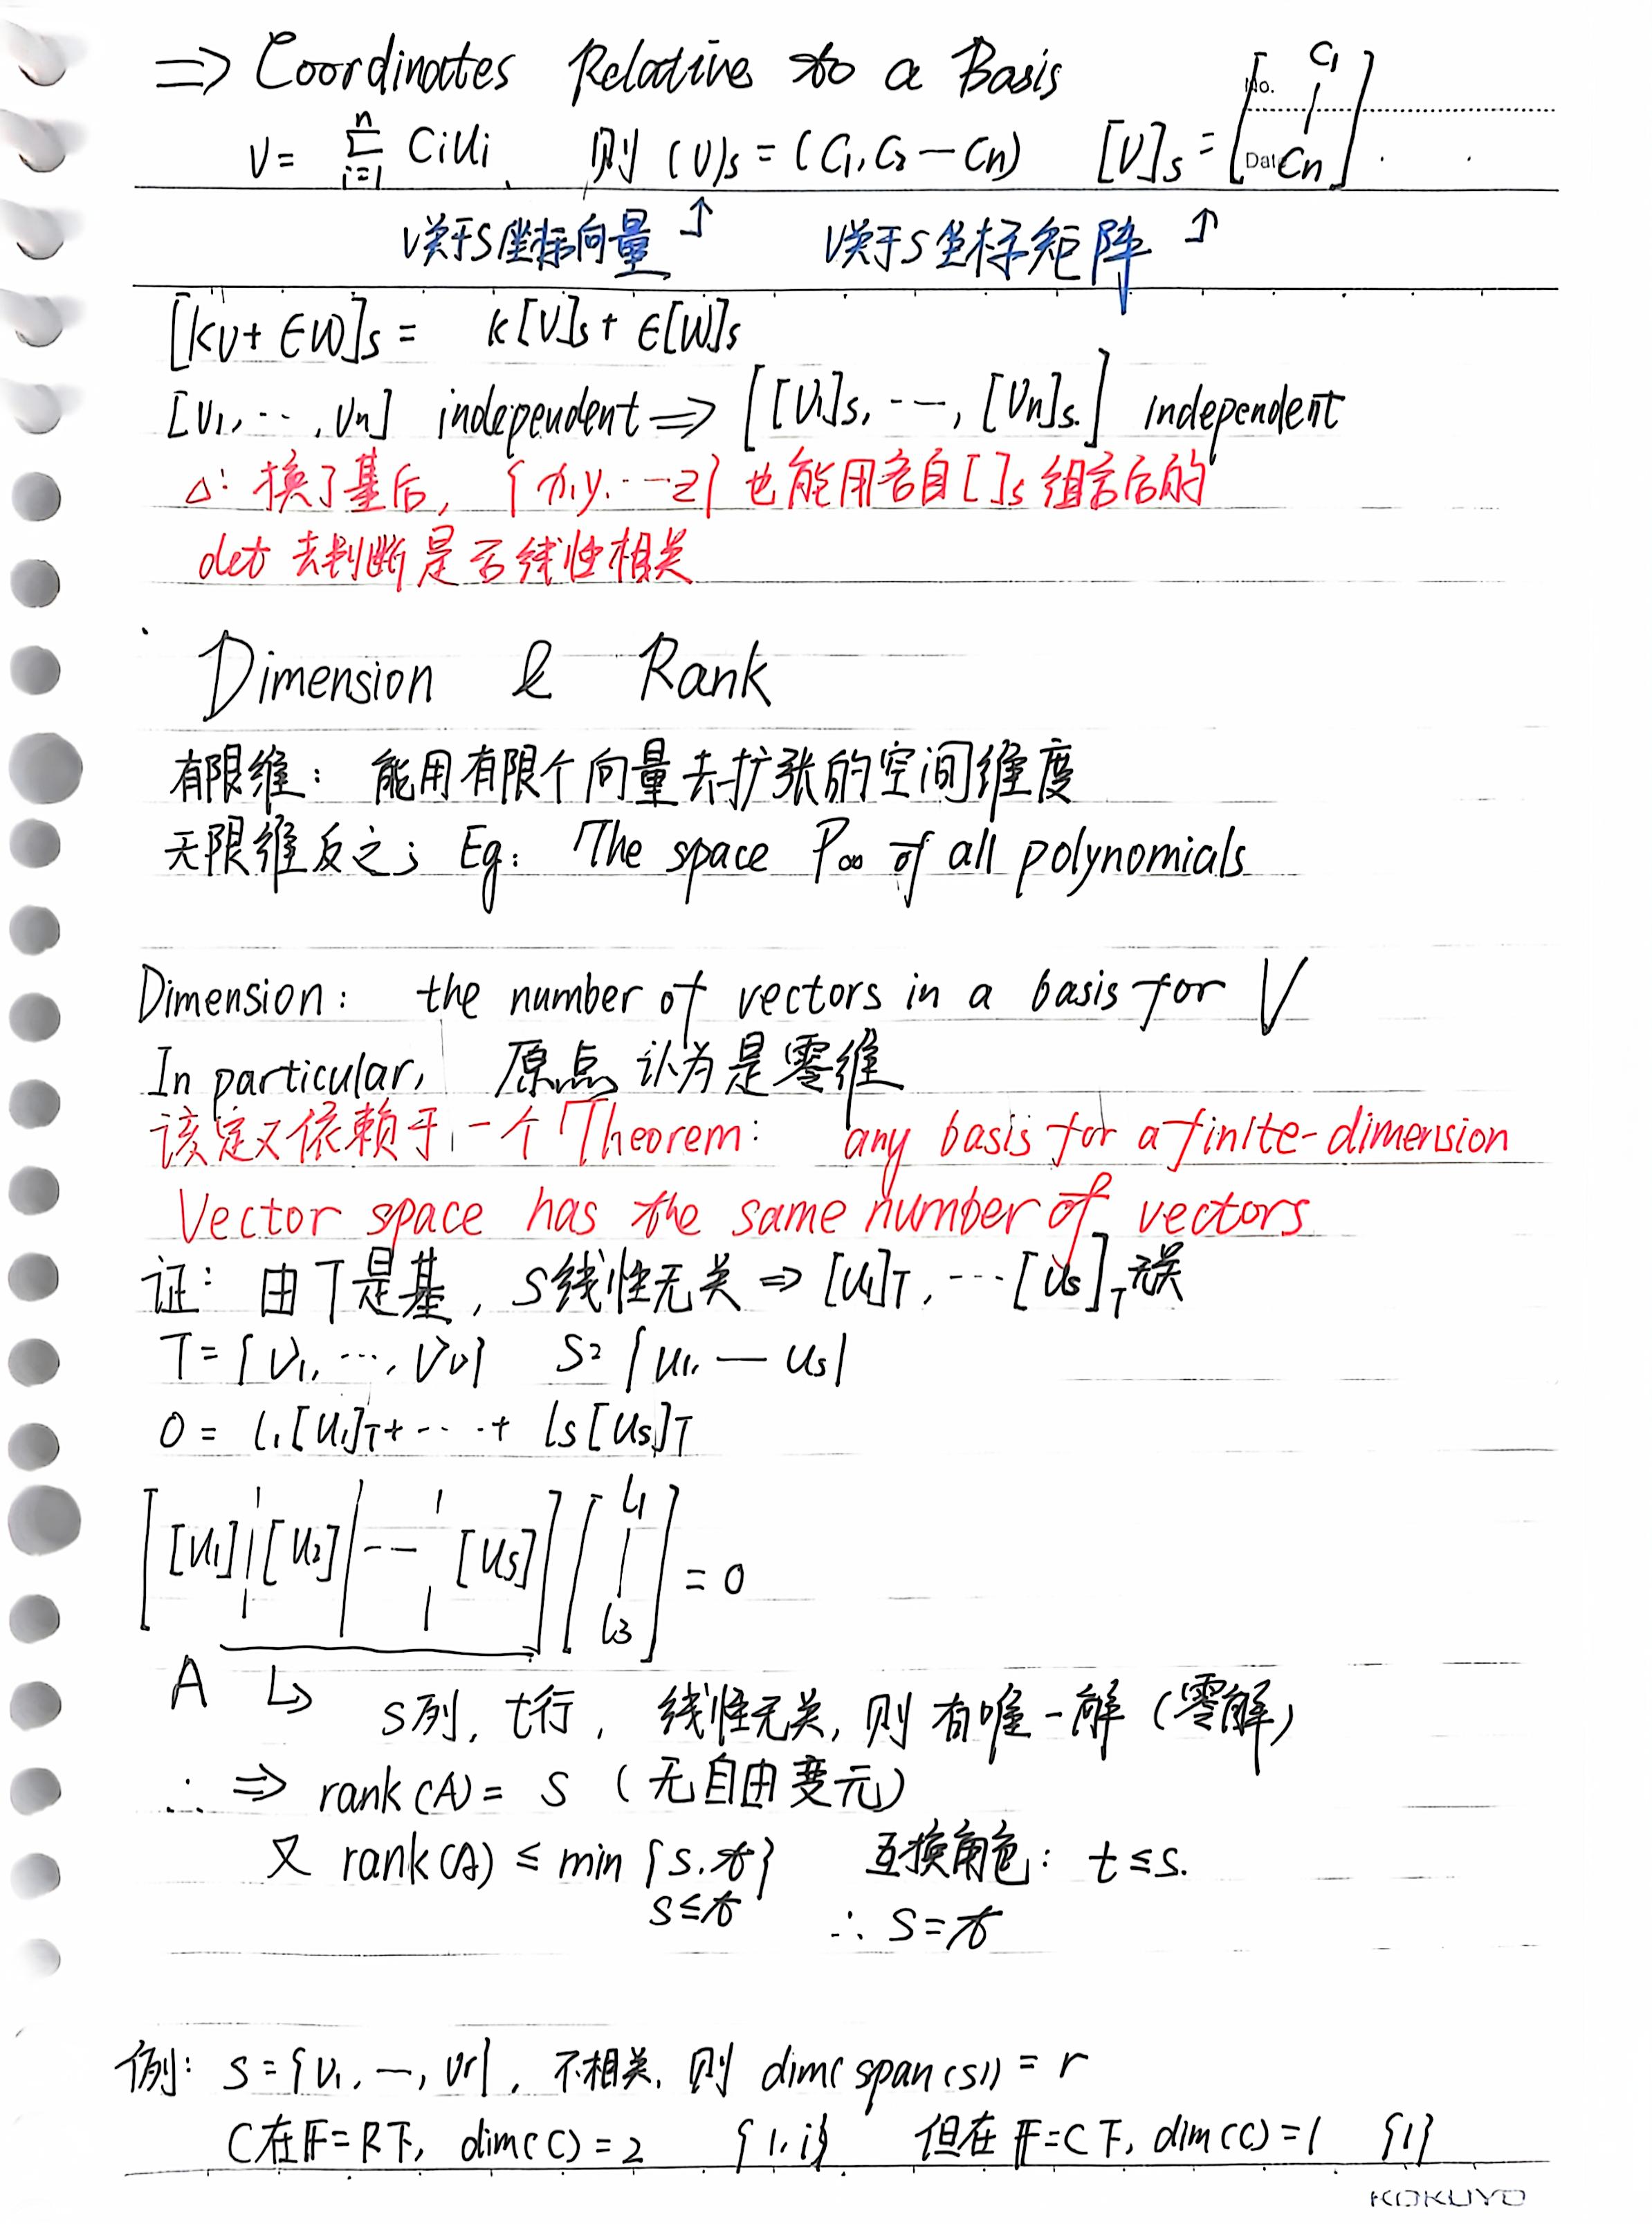 ⇒ Coordinates Relative to a Basis
No.
V = ∑_{i=1}^{n} CiUi, 则 (V)s = (C1, C2 — Cn) [V]s = [C1 | Cn]
Date
V关于S坐标向量 ↑ V关于S坐标矩阵 ↑
[kv + ∈W]s = k[V]s + ∈[W]s
[V1, ..., Vn] independent ⇒ [[V1]s, ---, [Vn]s] independent
△: 换了基后, {x,y,...z} 也能用各自[]s 组合后的
det 去判断是否线性相关
Dimension & Rank
有限维: 能用有限个向量去扩张的空间维度
无限维反之; Eg: The space P∞ of all polynomials
Dimension: the number of vectors in a basis for V
In particular, 原点 认为是零维
该定义依赖于一个 Theorem: any basis for a finite-dimension
Vector space has the same number of vectors
证: 由T是基, S线性无关 ⇒ [U1]T, ...[Us]T 无关
T = {V1, ..., Vt} S = {U1, — Us}
0 = l1[U1]T + ... + ls[Us]T
[[U1] | [U2] | --- | [Us]] [l1 | l3] = 0
A ↳ S列, t行, 线性无关, 则 有唯一解 (零解)
∴ ⇒ rank(A) = S (无自由变元)
又 rank(A) ≤ min {s, t} 互换角色: t ≤ s.
s ≤ t ∴ S = t
例: S = {V1, —, Vr}, 不相关, 则 dim(span(S)) = r
C在𝔽=R下, dim(C) = 2 {1, i} 但在 𝔽=C下, dim(C) = 1 {1}
KOKUYO